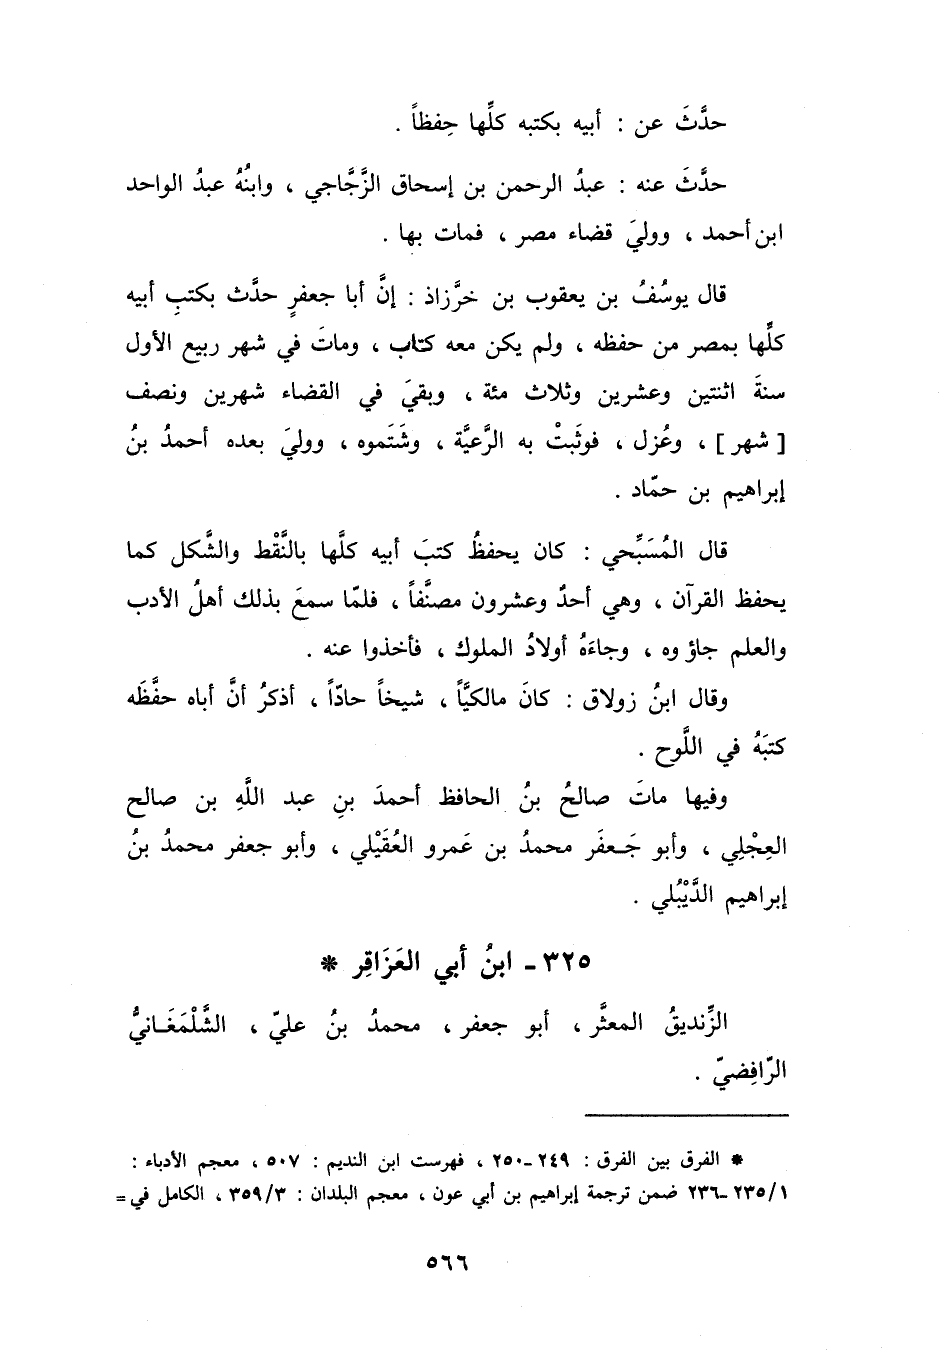 حدَّثَ عن : أبيه بكتبه كلِّها حِفظاً .
حدَّثَ عنه : عبدُ الرحمن بن إسحاق الزَّجَّاجي ، وابنُهُ عبدُ الواحد
ابن أحمد ، ووليَ قضاء مصر ، فمات بها .
قال يوسُفُ بن يعقوب بن خرَّزاذ : إنَّ أبا جعفرٍ حدَّث بكتبِ أبيه
كلِّها بمصر من حفظه ، ولم يكن معه كتاب ، وماتَ في شهر ربيع الأول
سنةَ اثنتين وعشرين وثلاث مئة ، وبقيَ في القضاء شهرين ونصف
[ شهر ] ، وعُزل ، فوثَبتْ به الرَّعيَّة ، وشَتَموه ، ووليَ بعده أحمدُ بنُ
إبراهيم بن حمّاد .
قال المُسَبِّحي : كان يحفظُ كتبَ أبيه كلَّها بالنَّقْط والشَّكل كما
يحفظ القرآن ، وهي أحدٌ وعشرون مصنَّفاً ، فلمّا سمعَ بذلك أهلُ الأدب
والعلم جاؤوه ، وجاءَهُ أولادُ الملوك ، فأخذوا عنه .
وقال ابنُ زولاق : كانَ مالكيَّاً ، شيخاً حادّاً ، أذكرُ أنَّ أباه حفَّظَه
كتبَهُ في اللَّوح .
وفيها ماتَ صالحُ بنُ الحافظ أحمدَ بنِ عبد اللَّهِ بن صالح
العِجْلي ، وأبو جَعفَر محمدُ بن عَمرو العُقَيْلي ، وأبو جعفر محمدُ بنُ
إبراهيم الدَّيْبُلي .
٣٢٥ - ابنُ أبي العَزَاقِر *
الزِّنديقُ المعثَّر ، أبو جعفر ، محمدُ بنُ عليّ ، الشَّلْمَغَانيُّ
الرّافِضيّ .
* الفرق بين الفرق : ٢٤٩ - ٢٥٠ ، فهرست ابن النديم : ٥٠٧ ، معجم الأدباء :
١ / ٢٣٥ - ٢٣٦ ضمن ترجمة إبراهيم بن أبي عون ، معجم البلدان : ٣ / ٣٥٩ ، الكامل في =
٥٦٦